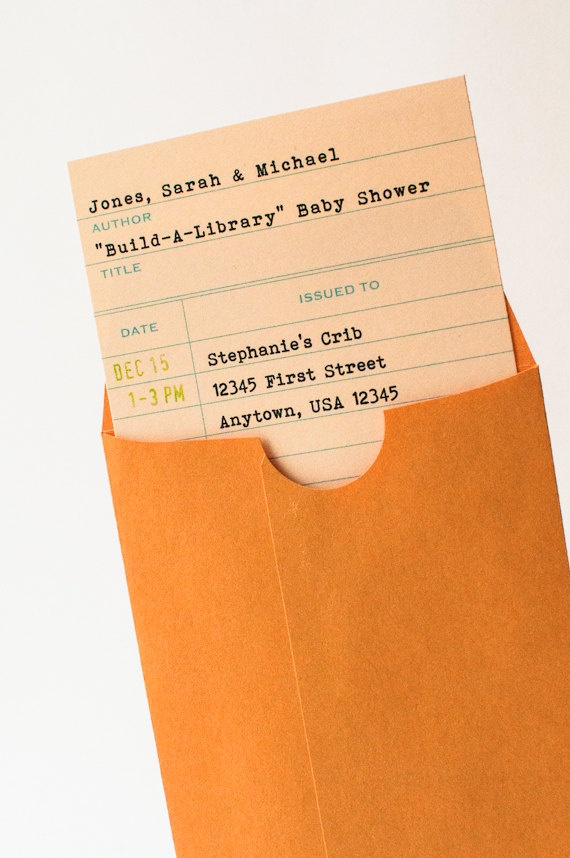 Jones, Sarah & Michael
AUTHOR
"Build-A-Library" Baby Shower
TITLE
DATE
ISSUED TO
DEC 15
1-3 PM
Stephanie's Crib
12345 First Street
Anytown, USA 12345